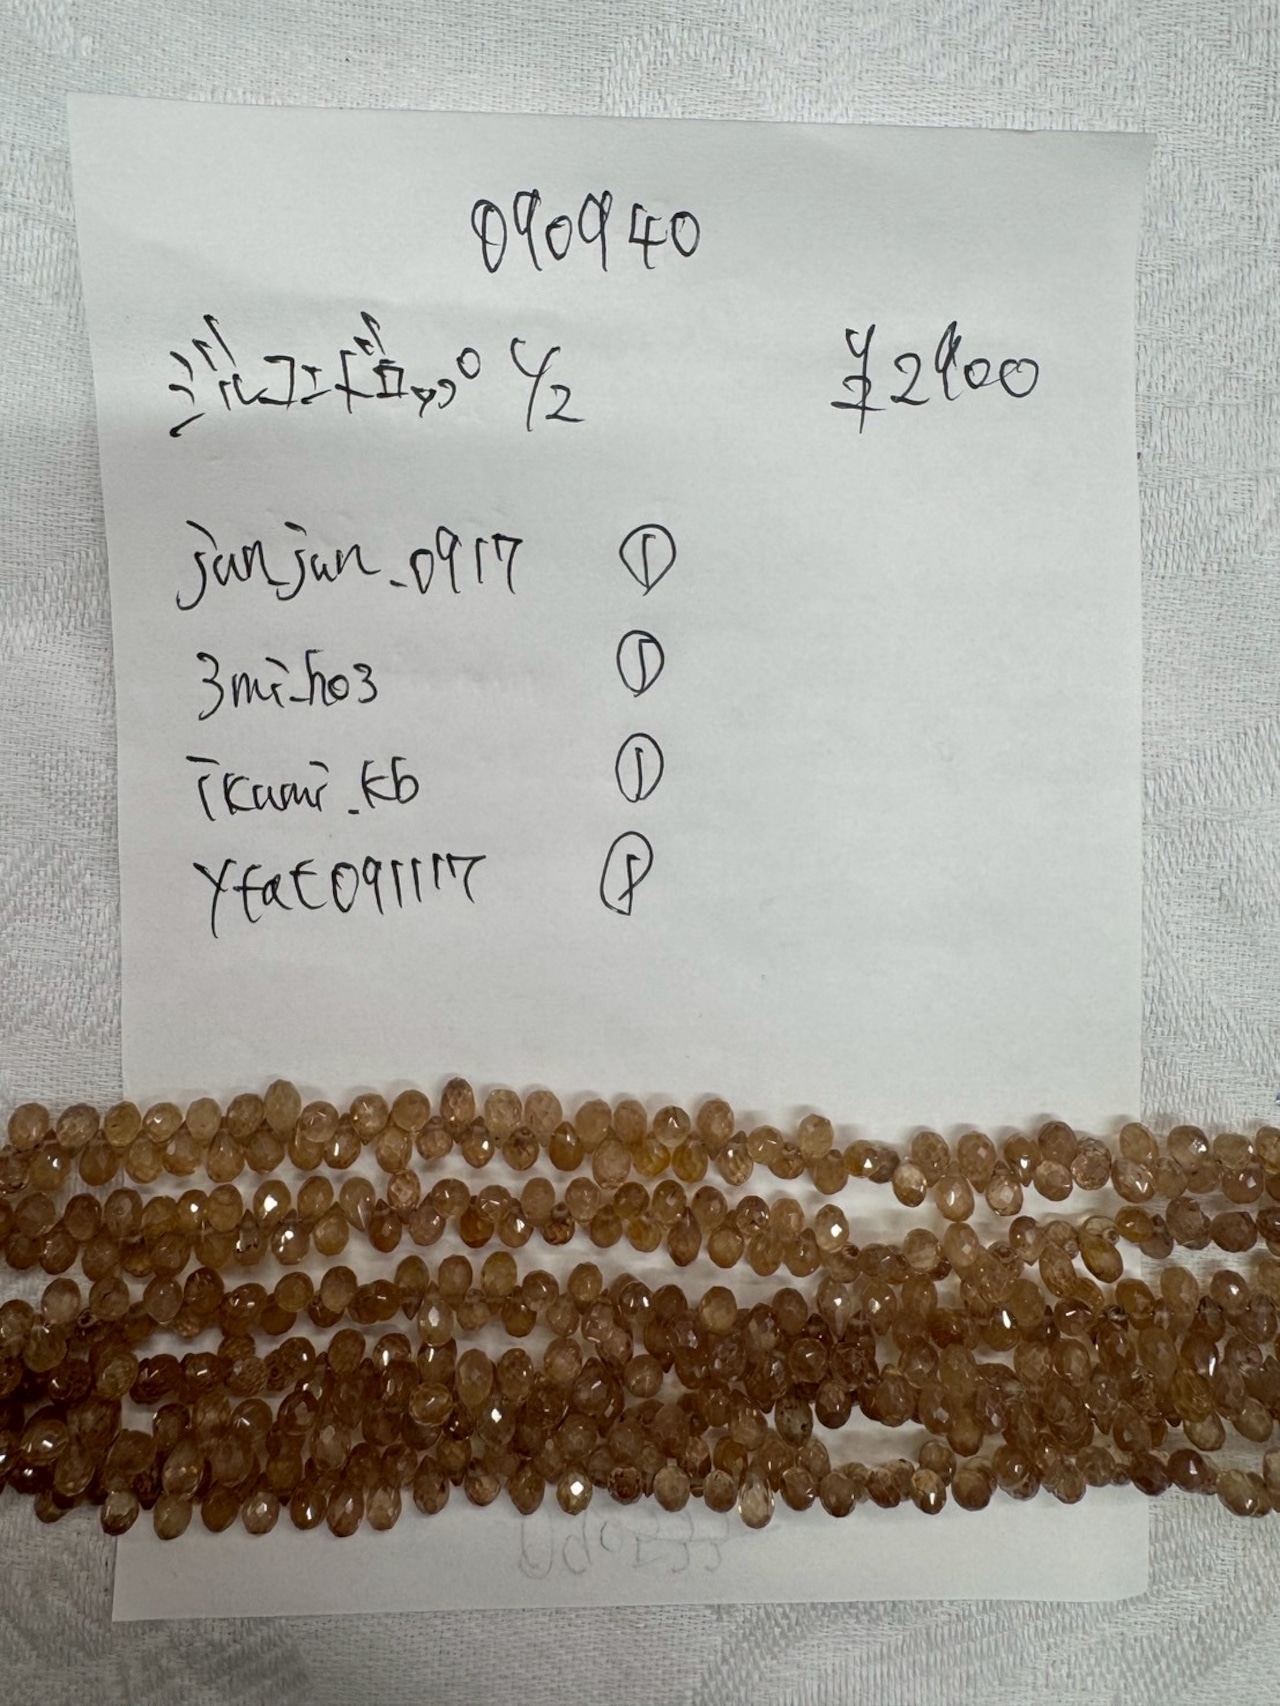 090940
ジルコンドロップ 1/2 ¥2900
junjun_0917 ①
3mi_ho3 ①
ikumi_kb ①
yfat091117 ①